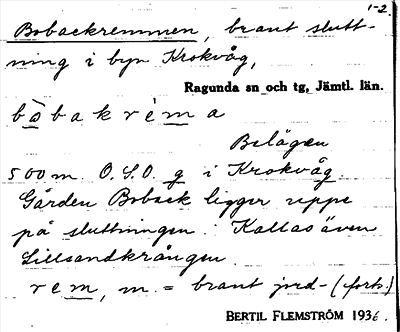 1-2.
Bobackremmen, brant slutt-
ning i byn Krokvåg,
Ragunda sn och tg, Jämtl. län.
bòbakréma
Belägen
500 m. O.S.O. g i Krokvåg.
Gården Boback ligger uppe
på sluttningen. Kallas även
Lillsandkrången.
rem, m. = brant jord- (forts.)
BERTIL FLEMSTRÖM 1936.